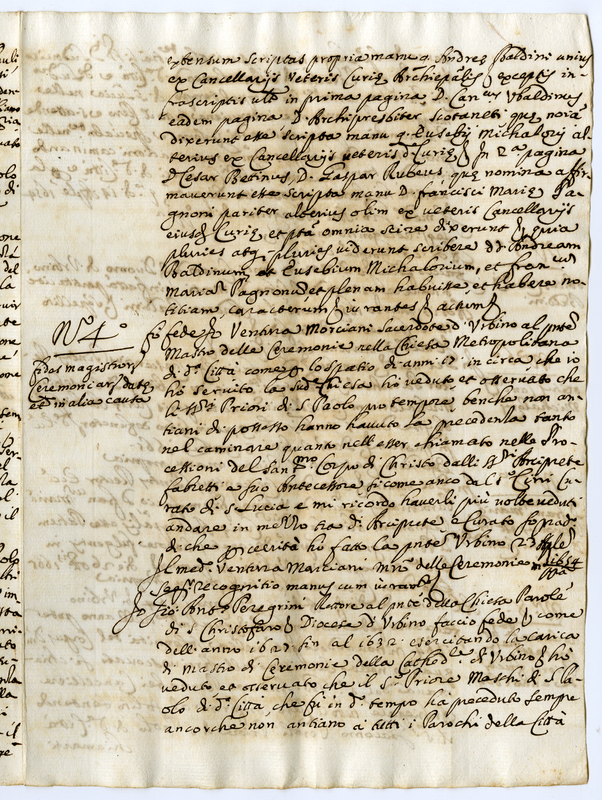 extensum scriptas propria manu q. Andreę Baldini unius
ex Cancellarijs Veteris Curię Archiepalis exceptis in-
frascriptis in prima pagina D. Can. Ubaldinus
eadem pagina D. Archipresbiter Scotaneti quę noia
dixerunt esse scripta manu q. Eusebij Michalorij al-
terius ex Cancellarijs veteris d. Curię In 2.a pagina
D. Cesar Betinus D. Gaspar Rubeus, quę nomina affir-
maverunt esse scripta manu D. francisci Marię Pa-
gnoni pariter alterius olim ex veteris Cancellarijs
eiusd. Curię, et omnia scire dixerunt quia
pluries atq. pluries viderunt scribere dd. Andream
Baldinum, et Eusebium Michalorium, et fran.
Maria Pagnonu et plenam habuisse et habere no-
titiam caracterum iurantes
N.o 4.o
fides magistror.
Ceremoniar. datę
et in alia causa
Io fede Ventura Marciani sacerdote d'Urbino al pnte
Mastro delle Ceremonie nella Chiesa Metropolitana
di d. Città come lo spatio di anni 17 in circa che io
ho servito la sud. Chiesa ho veduto et osservato che
li Priori di S. Paolo pro tempore benche non an-
tiani di possesso hanno havuto la precedenza tanto
nel caminare quanto nell'esser chiamato nelle Pro-
cessioni del San.mo Corpo di Christo dalli Arciprete
fabietti e suo Antecessore si come anco da Cu-
rato di S. Lucia e mi ricordo haverli più volte veduti
andare in mezzo tra di Arciprete e Curato soprad.
di che verità ho fatto la pnte Urbino 23 Aple
1654
Il med. Ventura Marciani mro delle Ceremonie
recognitio manus cum
Io Gio: Anto. Peregrini Rettore al pnte della Chiesa Parole
di S. Christofaro Diocese d'Urbino faccio fede come
dell'anno 1627 sin al 1632 esercitando la carica
di Mastro di Ceremonie della Cathed.le di Urbino ho
veduto et osservato che il S. Priore Maschi di S. Pa-
olo di d. Città che fù in d. tempo ha preceduto sempre
ancorche non antiano à tutti i Parochi della Città